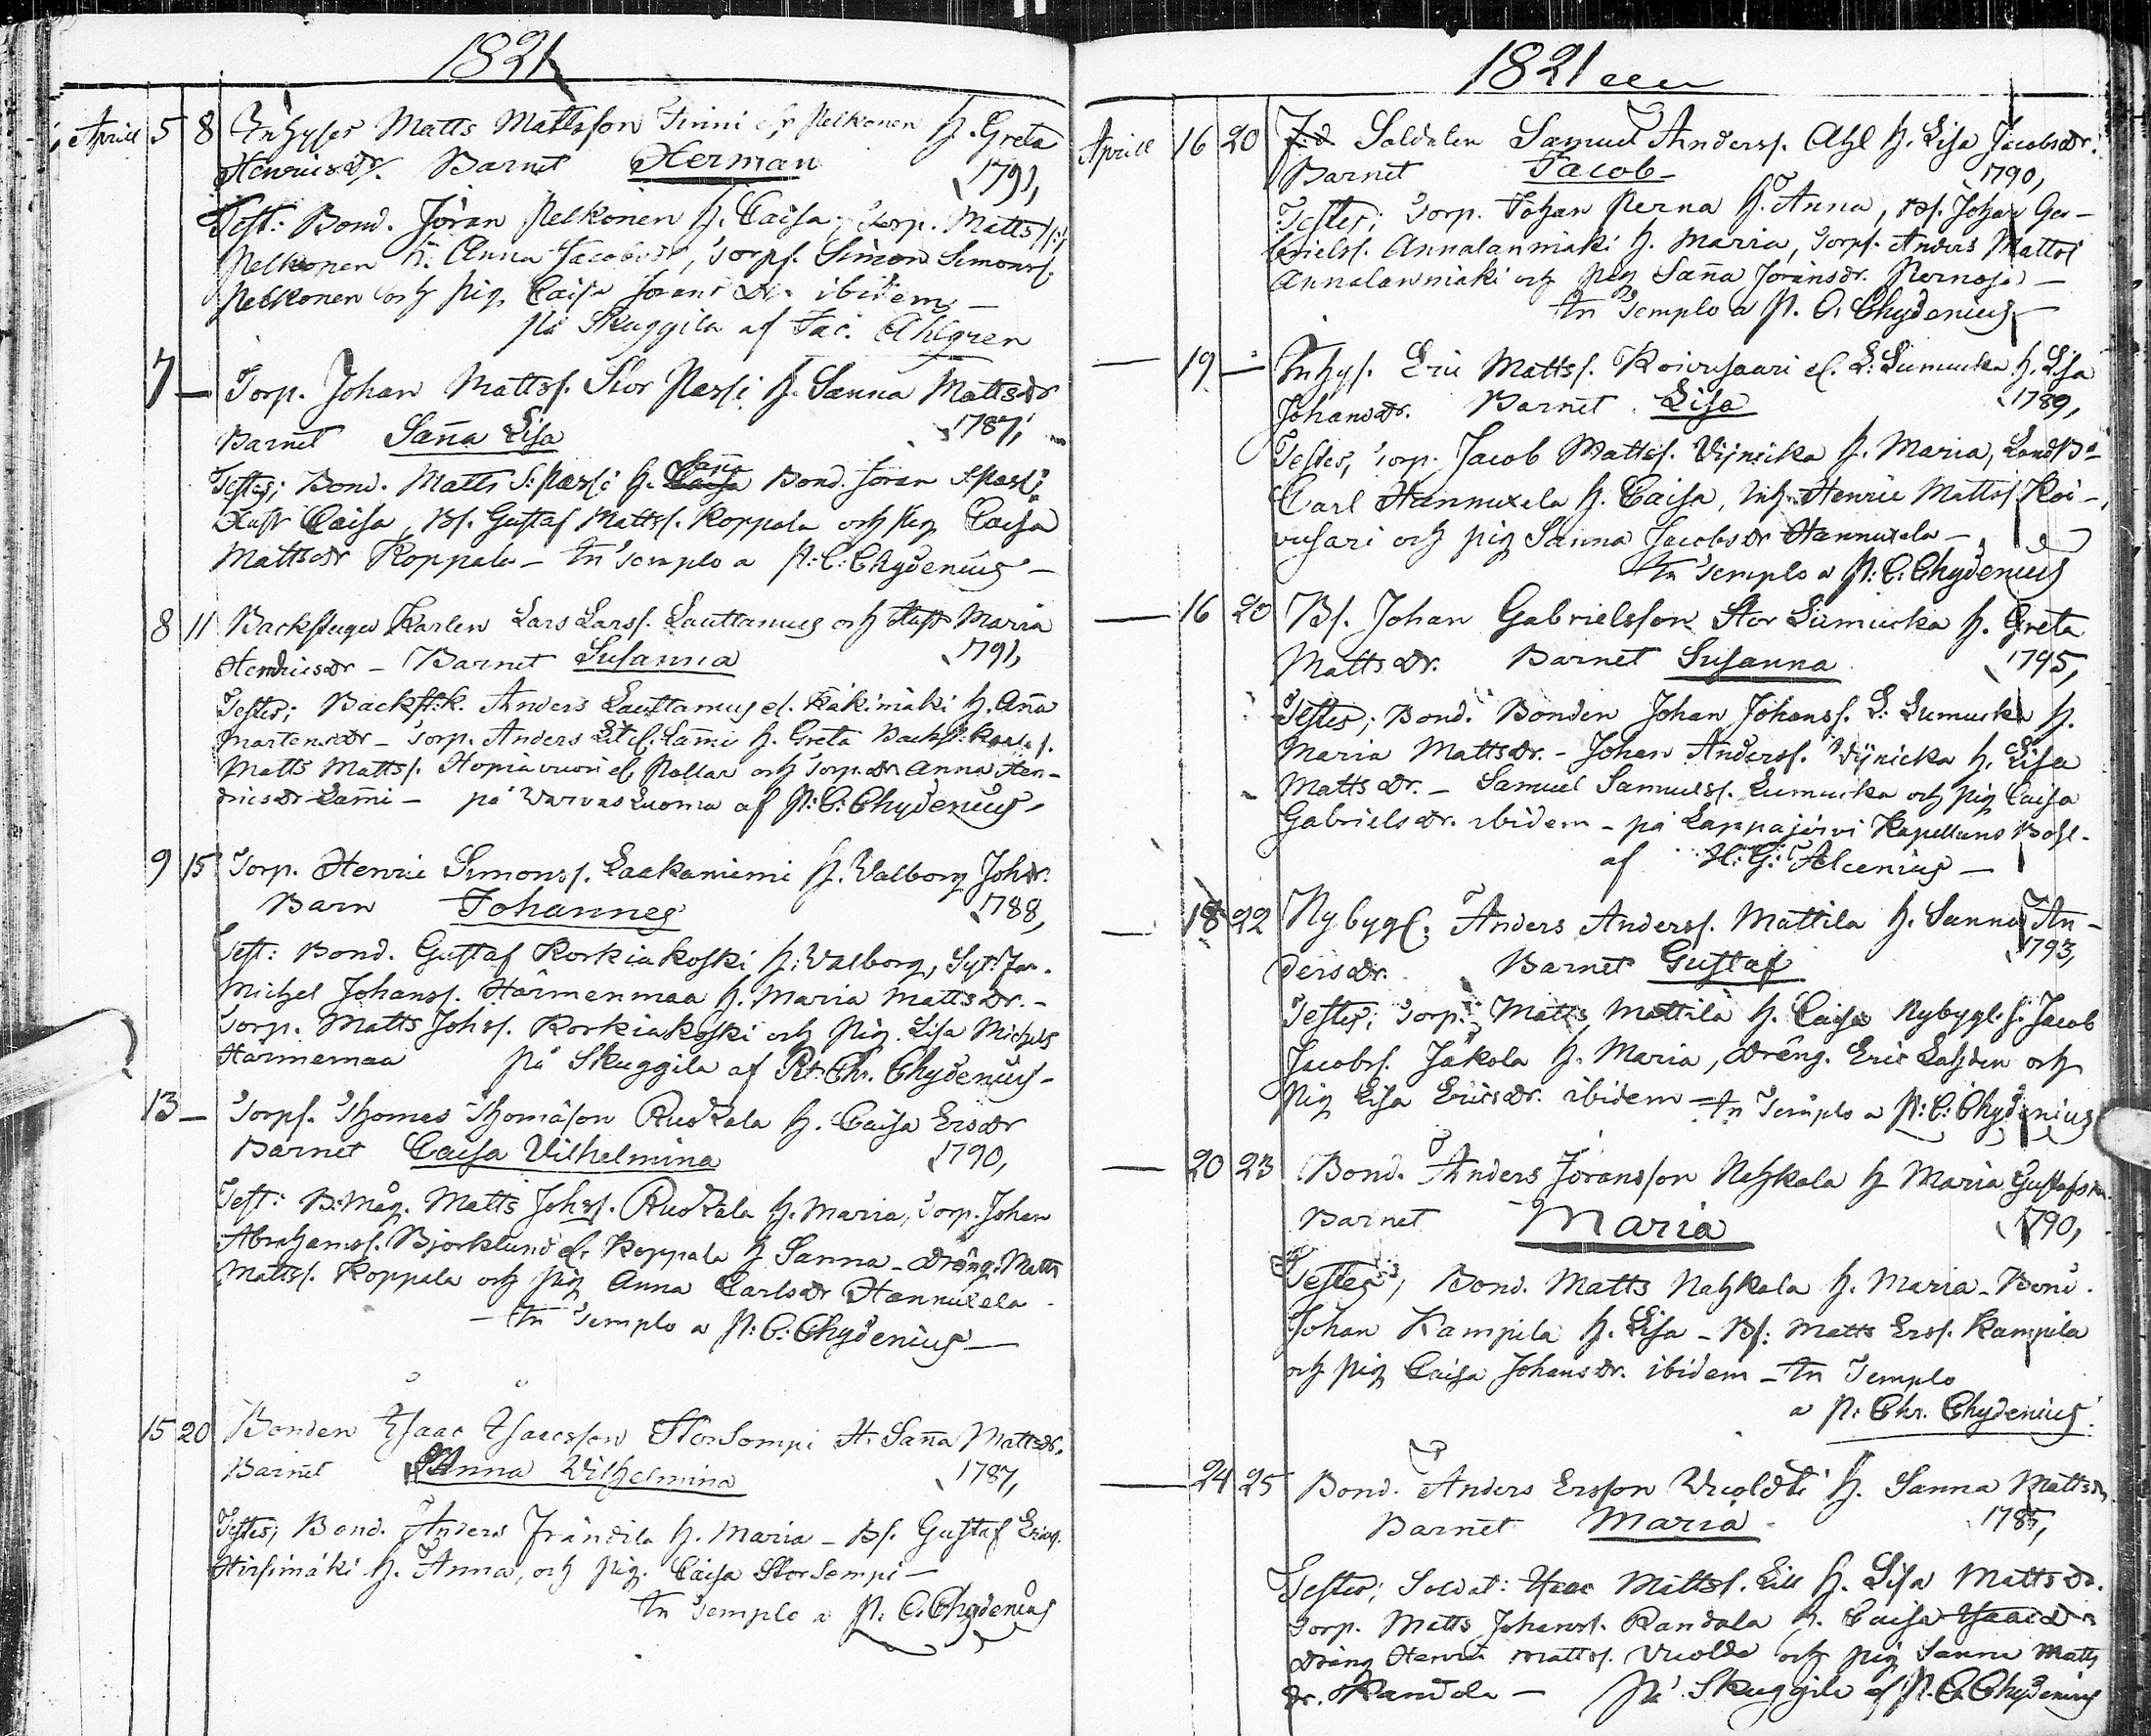 1821
April 5 8 Inhyses Matts Mattsson Finni el. Pelkonen h. Greta
Henricsdr. Barnet Herman 1791,
Test: Bond. Jöran Pelkonen h. Caisa, Torp. Matts
Pelkonen h. Anna Jacobsdr, Torps. Simon Simonss.
Pelkonen och pig. Caisa Jöransdr. ibidem –
på Skuggila af Jac. Ahlgren
7 – Torp. Johan Mattss. Stor Passi h. Sanna Mattsdr
Barnet Sañna Lisa 1787,
Testes; Bond. Matts S: Passi h. Caisa Bond. Jöran Passi
Hustr Caisa, Bs. Gustaf Mattss. Koppala och pig Caisa
Mattsdr Koppala – In Templo a P: C: Chydenius –
8 11 Backstugu Karlen Lars Larss. Lauttamus och Hustr Maria
Henricsdr – Barnet Susanna 1791,
Testes; Backst:k. Anders Lauttamus el. Käkimäki h. Aña
Martensdr – Torp. Anders Lill. Lammi h. Greta Backst: karls s.
Matts Mattss. Hopiavuori el Pollar och Torp.dr Anna Hen-
ricsdr Lammi – på Varvas Luoma af P: C: Chydenius –
9 15 Torp. Henric Simonss. Laakaniemi h. Valborg Johdr.
Barn Johannes 1788,
Test: Bond. Gustaf Korkiakoski h: Valborg,
Michel Johanss. Härmenmaa h. Maria Mattsdr. –
Torp. Matts Johss. Korkiakoski och Pig. Lisa Michels
Härmemaa på Skuggila af P: Chr. Chydenius –
13 – Torps. Thomas Thomasson Ruokala h. Caisa Ersdr
Barnet Caisa Vilhelmina 1790,
Test: B: Måg. Matts Johss. Ruokala h. Maria, Torp. Johan
Abrahamss. Björklund el. Koppala h Sanna – Dräng. Matts
Mattss. Koppala och pig Anna Carlsdr Hannuxela
– In Templo a P: C: Chydenius –
15 20 Bonden Isaac Isaacsson Storsompi H. Sañna Mattsdr.
Barnet Anna Vilhelmina 1787,
Testes; Bond. Anders Frändilä h. Maria – Bs. Gustaf Erics.
Hirsimäki h. Anna, och pig. Caisa Storsompi –
In Templo a P. C. Chydenius
1821
April 16 20 F.d. Soldaten Samuel Anderss. Ahl h. Lisa Jacobsdr.
Barnet Jacob 1790,
Testes; Torp. Johan Perna h. Anna, Bs. Johan Ga-
brielss. Annalanmäki h. Maria, Torps. Anders Mattss
Annalanmäki och pig Sañna Jöransdr. Pernoja –
In Templo a P. C. Chydenius –
– 19 – Inhys. Eric Mattss. Koivusaari el. L: Lumucka h. Lisa
Johansdr. Barnet Lisa 1789,
Testes, Torp. Jacob Mattss. Vijnicka h. Maria, Landb
Carl Hannuxela h. Caisa, Inh. Henric Mattss. Koi-
vusari och pig Sanna Jacobsdr Hannuxela –
In Templo a P: C: Chydenius
– 16 20 Bs. Johan Gabrielsson Stor Lumucka h. Greta
Mattsdr. Barnet Susanna 1795,
Testes; Bond. Bonden Johan Johanss. L: Lumucka h.
Maria Mattsdr. – Johan Anderss. Vijnicka h. Lisa
Mattsdr. – Samuel Samuelss. Lumucka och pig Caisa
Gabrielsdr. ibidem – på Lappajärvi Kapellans Bohl.
af H: G: Alcenius –
– 18 22 Nybygg. Anders Anderss. Mattila h. Sanna An-
dersdr. Barnet Gustaf 1793,
Testes; Torp. Matts Mattila h. Caisa Nybygg. s. Jacob
Jacobss. Jäkola h. Maria, Dräng. Eric Lahden och
pig Lisa Ericsdr. ibidem – In Templo a P: C: Chydenius
– 20 23 Bond. Anders Jöransson Nahkala h Maria Gustafsdr.
Barnet Maria 1790,
Testes, Bond. Matts Nahkala h. Maria – Bond.
Johan Kampila h. Lisa – Bs: Matts Erss. Kampila
och pig Caisa Johansdr. ibidem – In Templo
a P: Chr. Chydenius.
– 24 25 Bond. Anders Ersson Vuoldti h. Sanna Mattsdr
Barnet Maria 1785,
Testes; Soldat: Isac Mattss. Lill h. Lisa Mattsdr.
Torp. Matts Johanss. Randala h. Caisa Isaacdr
Dräng Henric Mattss. Vuolde och pig Sanna Matts
dr. Randala – på Skuggila af P. C. Chydenius